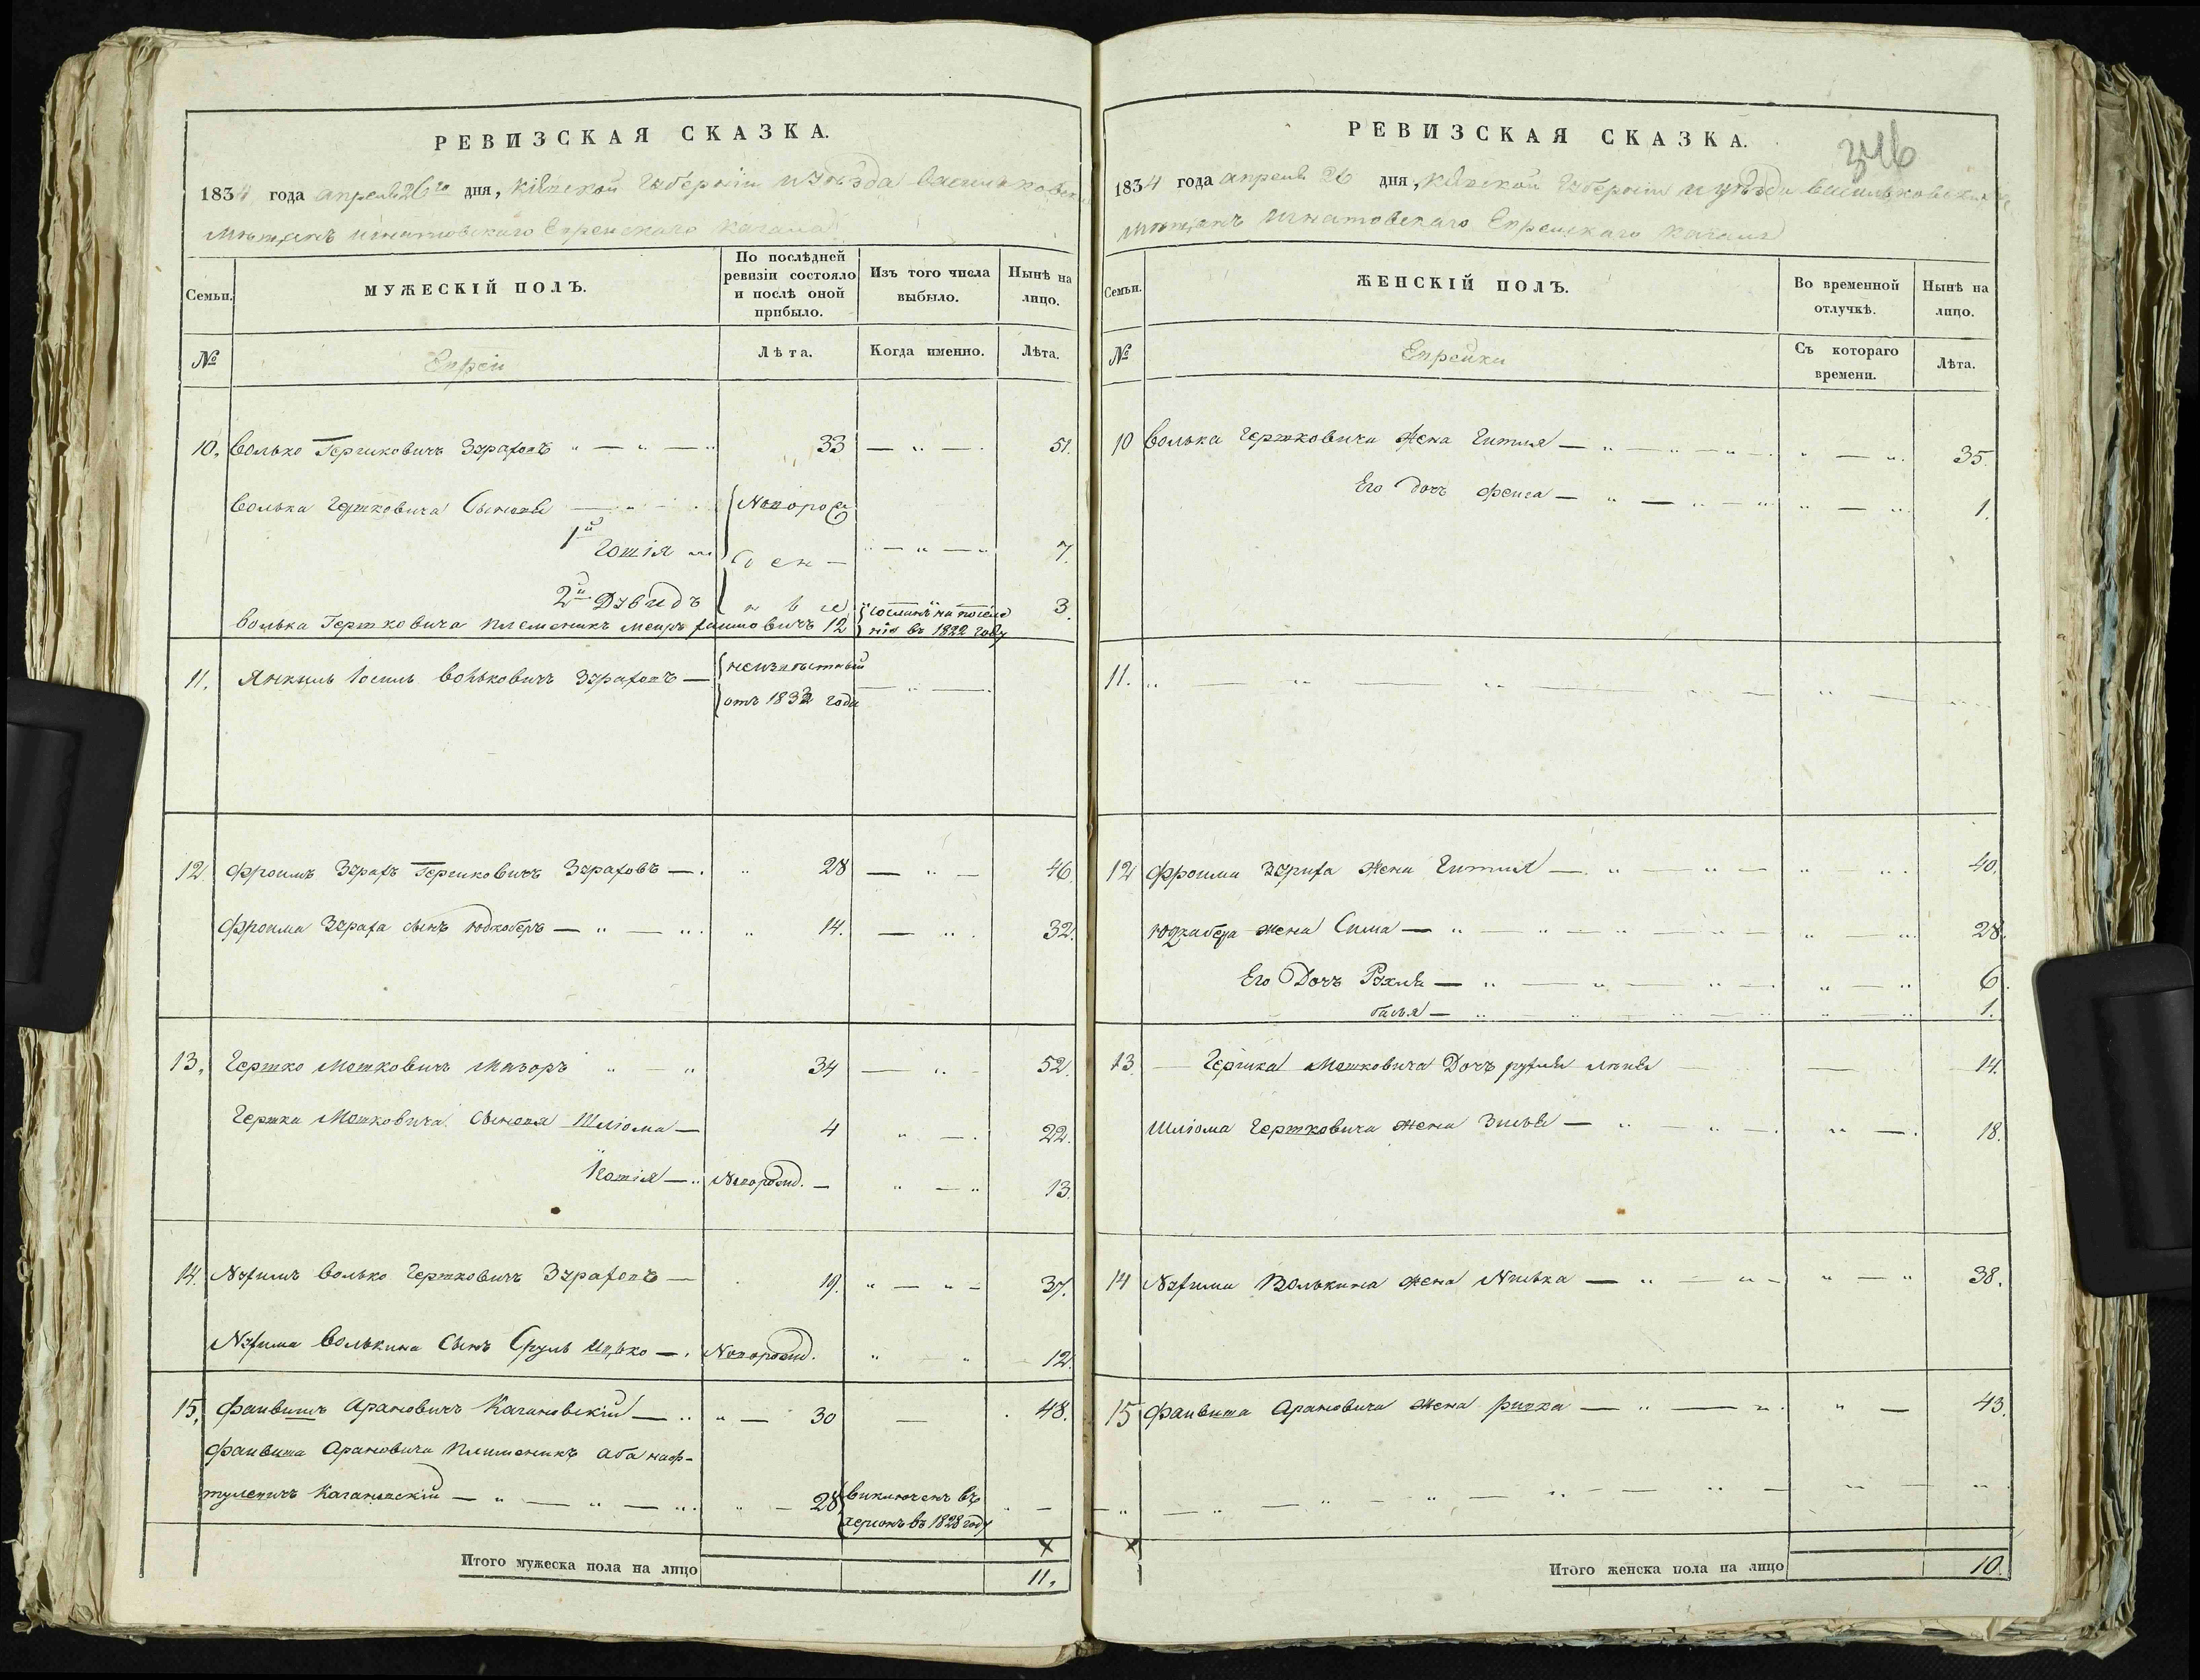 РЕВИЗСКАЯ СКАЗКА.
1834 года апреля 26го дня, Кіевской губерніи и уѣзда Васильковск
мѣщанъ Игнатовскаго Еврейскаго кагала
Семьи.
МУЖЕСКІЙ ПОЛЪ.
По послѣдней ревизіи состояло и послѣ оной прибыло.
Изъ того числа выбыло.
Нынѣ на лицо.
№
Евреи
Лѣта.
Когда именно.
Лѣта.
10. Волько Гершковичъ Зурафовъ 33 51.
Волька Гершковича Сыновя Новорож
1й Готія ден 7.
2й Дувидъ ныe 3.
Волька Гершковича племеникъ Меиръ 12 сосланъ на посѣле
ніе въ 1822 году
11. Янкиль Іосиль Вольковичъ Зурафовъ неизвѣстный
отъ 1833 года
12. Фроимъ Зурафъ Гершковичъ Зурафовъ 28 46.
Фроима Зурафа сынъ Юдкоберъ 14. 32.
13. Гершко Мошковичъ Мазоръ 34 52.
Гершка Мошковича Сыновя Шліома 4 22.
Мотія Новорожд. 13.
14. Нухимъ Волько Гершковичъ Зурафовъ 19. 37.
Нухима Волькина Сынъ Сруль Ицько Новорожд. 12.
15. Файвишъ Арановичъ Кагановскій 30 48.
Файвиша Арановича племеникъ Аба Наф-
тулевичъ Кагановскій 28 виключенъ въ
Херсонъ въ 1828 году
Итого мужеска пола на лицо 11.
346
РЕВИЗСКАЯ СКАЗКА.
1834 года апреля 26 дня, Кіевской губерніи и уѣзда Васильковскихъ
мѣщанъ Игнатовскаго Еврейскаго кагала
Семьи.
ЖЕНСКІЙ ПОЛЪ.
Во временной отлучкѣ.
Нынѣ на лицо.
№
Еврейки
Съ котораго времени.
Лѣта.
10 Волька Гершковича жена Гитля 35.
Его дочъ Фейга 1.
11.
12 Фроима Зурафа жена Гитля 40.
Юдкабера жена Сима 28.
Его Дочъ Рухля 6.
Бася 1.
13. Гершка Мошковича Дочъ 14.
Шліома Гершковича жена Зисля 18.
14 Нухима Волькина жена 38.
15 Файвиша Арановича жена Ривка 43.
Итого женска пола на лицо 10.